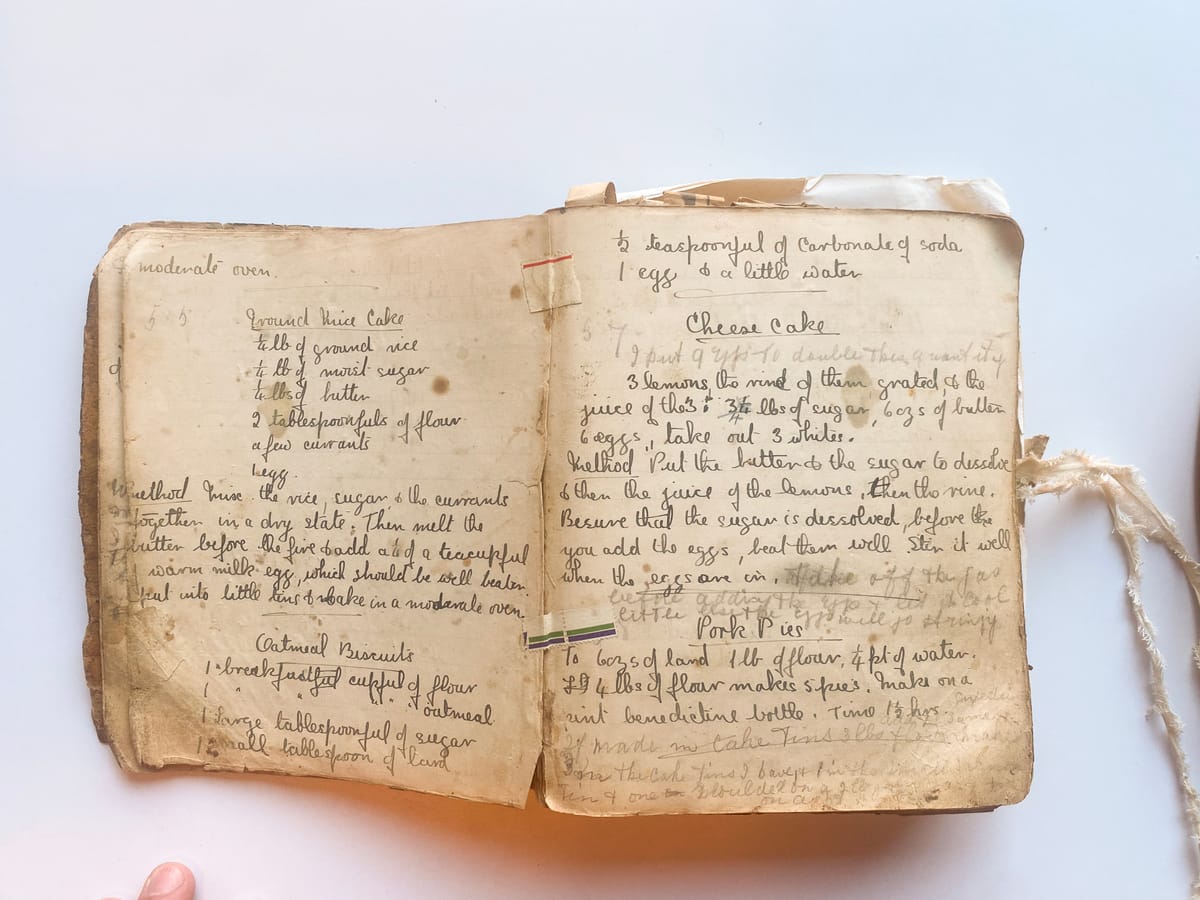 moderate oven.
55
Ground Rice Cake
¼ lb of ground rice
¼ lb of moist sugar
¼ lbs of butter
2 tablespoonfuls of flour
a few currants
1 egg.
Method Mix the rice, sugar & the currants
together in a dry state. Then melt the
butter before the fire & add a ¼ of a teacupful
of warm milk egg, which should be well beaten
put into little tins & bake in a moderate oven.
Oatmeal Biscuits
1 breakfastful cupful of flour
1 " " " oatmeal
1 Large tablespoonful of sugar
1 Small tablespoon of lard
½ teaspoonful of Carbonate of soda
1 egg & a little water
Cheese Cake
57
I put 9 eggs to double this quantity
3 lemons, the rind of them grated, & the
juice of the 3: ¾ lbs of sugar, 6 ozs of butter
6 eggs, take out 3 whites.
Method Put the butter & the sugar to dissolve
& then the juice of the lemons, then the rine.
Besure that the sugar is dessolved, before the
you add the eggs, beat them well Ster it well
when the eggs are in. Take off the gas
before adding the eggs & let it cool
little else the eggs will go stringy
Pork Pies
To 6ozs of lard 1 lb of flour, ¼ pt of water.
4 lbs of flour makes 5 pies. Make on a
pint benedictine bottle. Time 1½ hrs.
If made in Cake Tins 3 lbs flour
the Cake Tins I have
Tin & one moulded on
on a